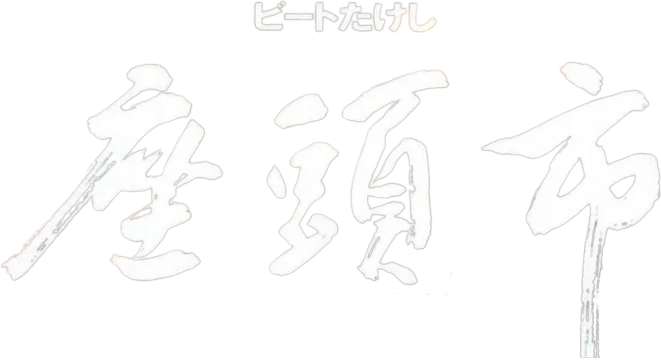 ビートたけし
座頭市